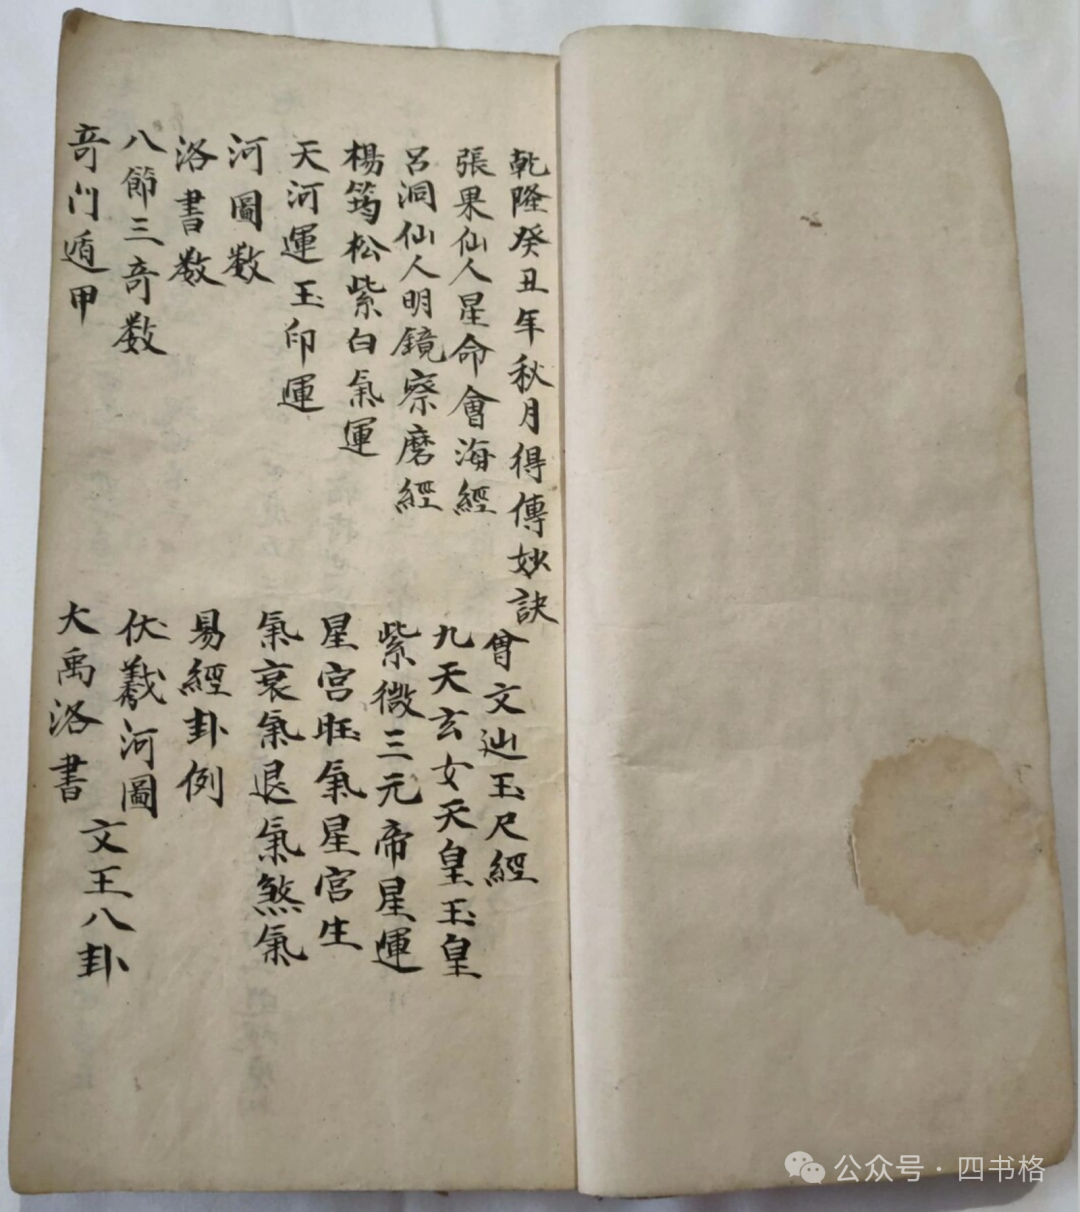 乾隆癸丑年秋月得傳妙訣
張果仙人星命會海經
呂洞仙人明鏡察磨經
楊筠松紫白氣運
天河運玉印運
河圖数
洛書数
八節三竒数
竒门遁甲
曾文辿玉尺經
九天玄女天皇玉皇
紫微三元帝星運
星宮旺氣星宮生
氣衰氣退氣煞氣
易經卦例
伏羲河圖
大禹洛書
文王八卦
公众号·四书格